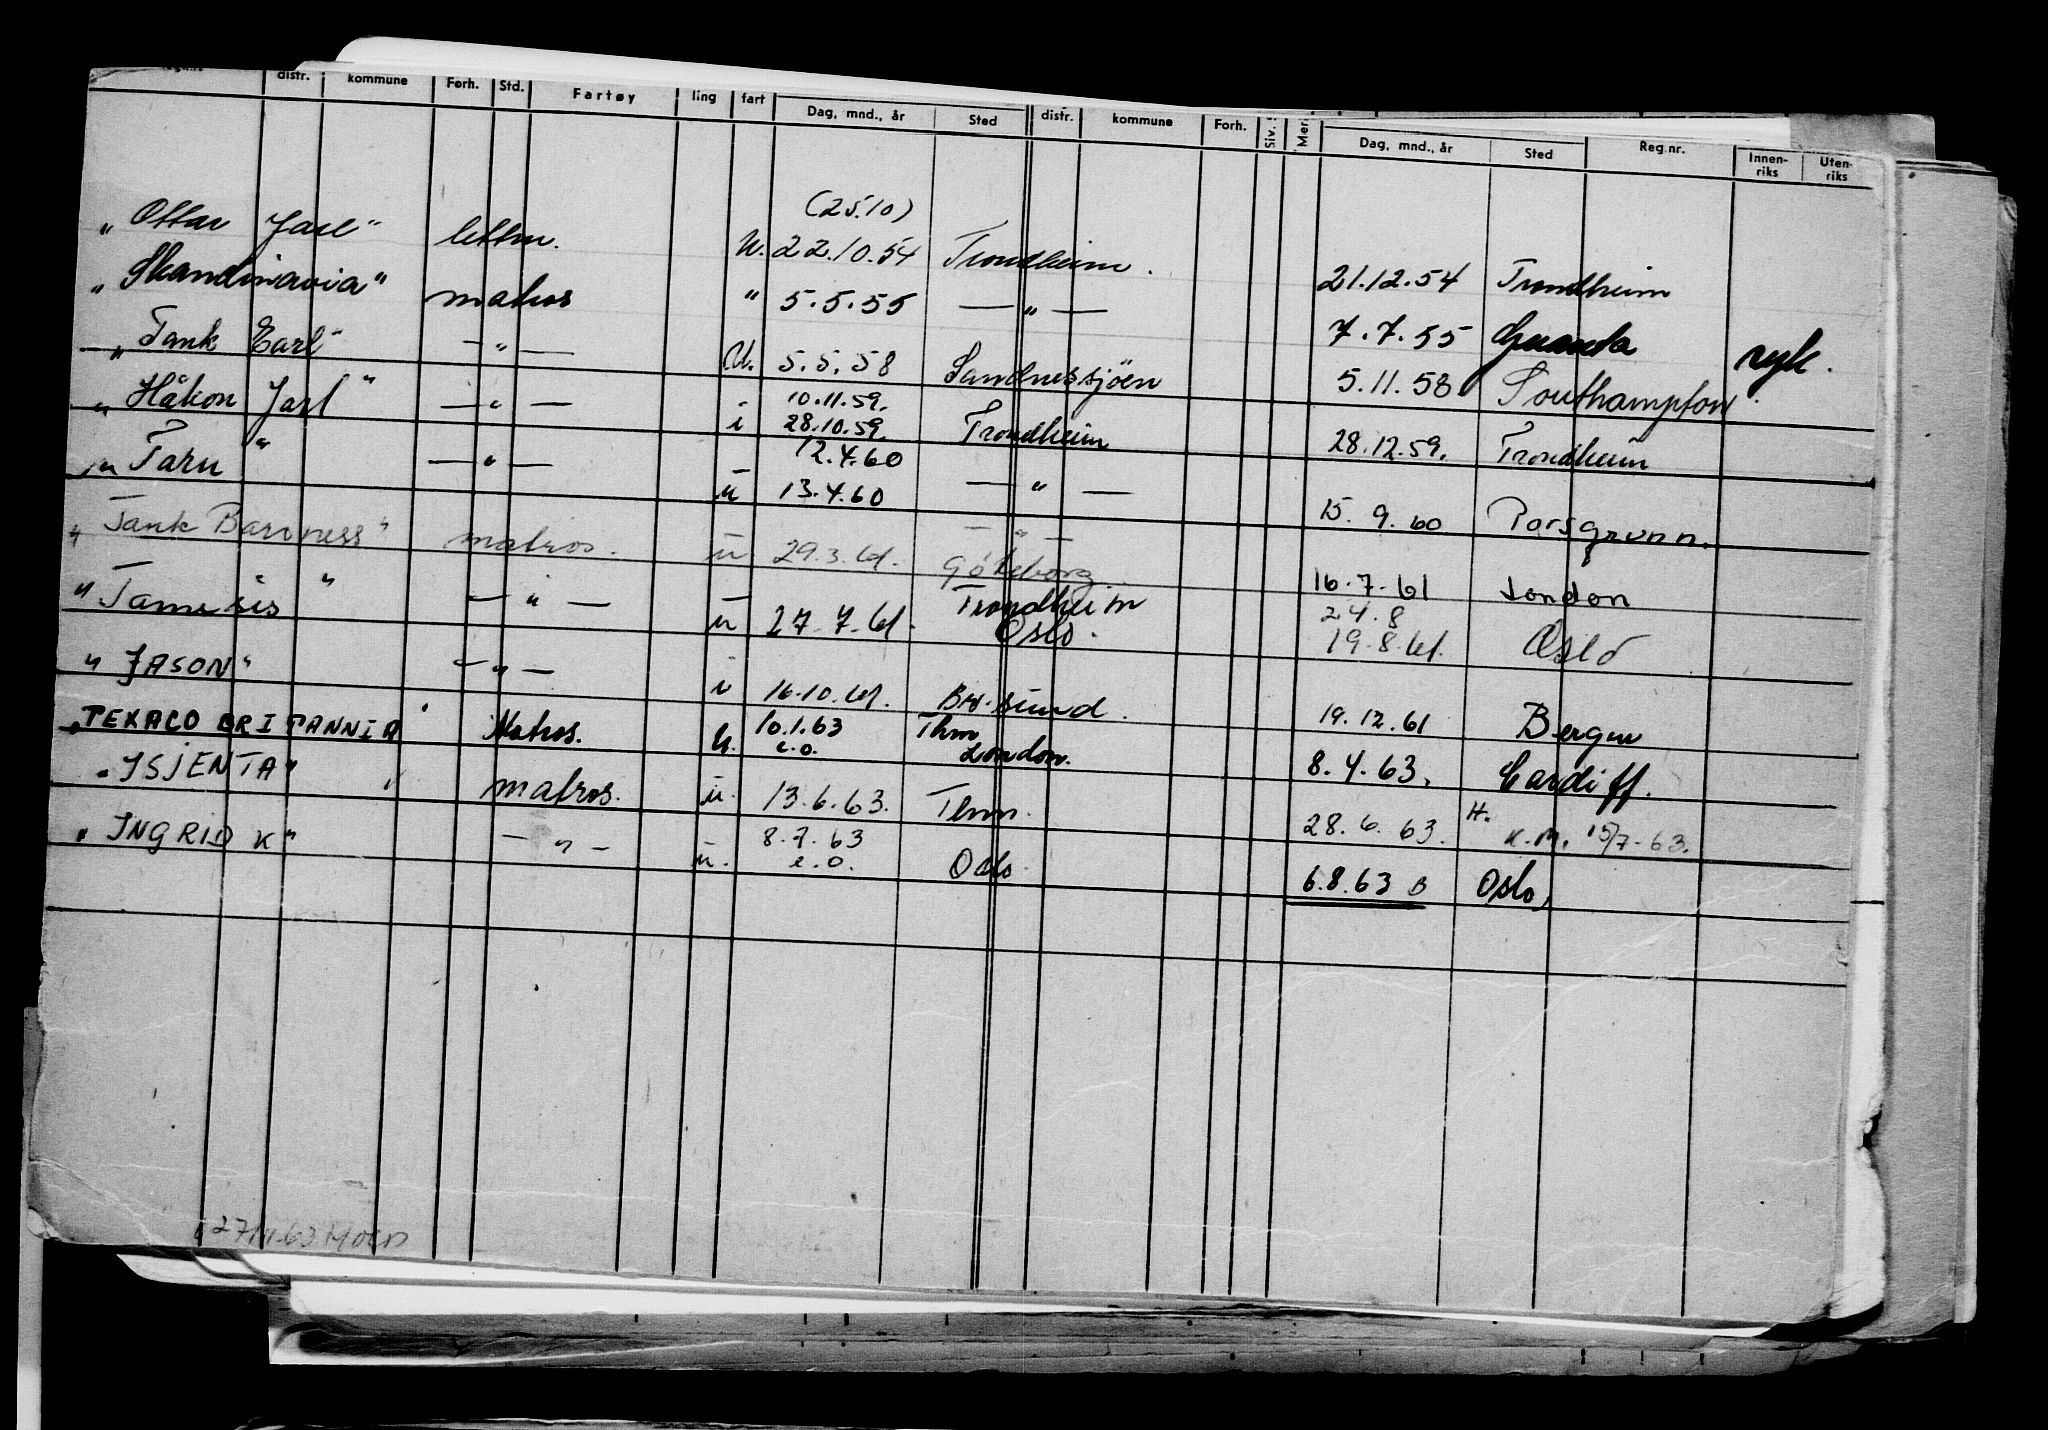 distr. kommune Forh. Std. Fartøy ling fart Dag, mnd., år Sted distr. kommune Forh. Siv. Mer Dag, mnd., år Sted Reg.nr. Innen-riks Uten-riks
(25.10)
"Ottar Jarl" lettm. u. 22.10.54 Trondheim. 21.12.54 Trondheim
"Skandinavia" matros " 5.5.55 — " — 7.7.55 syk.
"Tank Earl" — " — U. 5.5.58 Sandnessjöen 5.11.58 Southampton
10.11.59.
"Håkon Jarl" — " — i 28.10.59. Trondheim 28.12.59. Trondheim
12.4.60
"Taru" — " — ū 13.4.60 — " — 15.9.60 Porsgrunn.
— " —
"Tank Baroness" matros. ū 29.3.61. Göteborg 16.7.61 London
Trondheim 24.8
"Tamesis" — " — ū 27.7.61. Oslo. 19.8.61. Oslo
"JASON" — " — i 16.10.61. Br.sund. 19.12.61 Bergen
10.1.63 Thm
"TEXACO BRITANNIA" Matros. U. e.o. London. 8.4.63. Cardiff.
"ISJENTA" matros. ū. 13.6.63. Thm. 28.6.63. H. K.M. 15/7-63.
8.7.63
"INGRID K" — " — ū. e.o. Oslo 6.8.63 B Oslo,